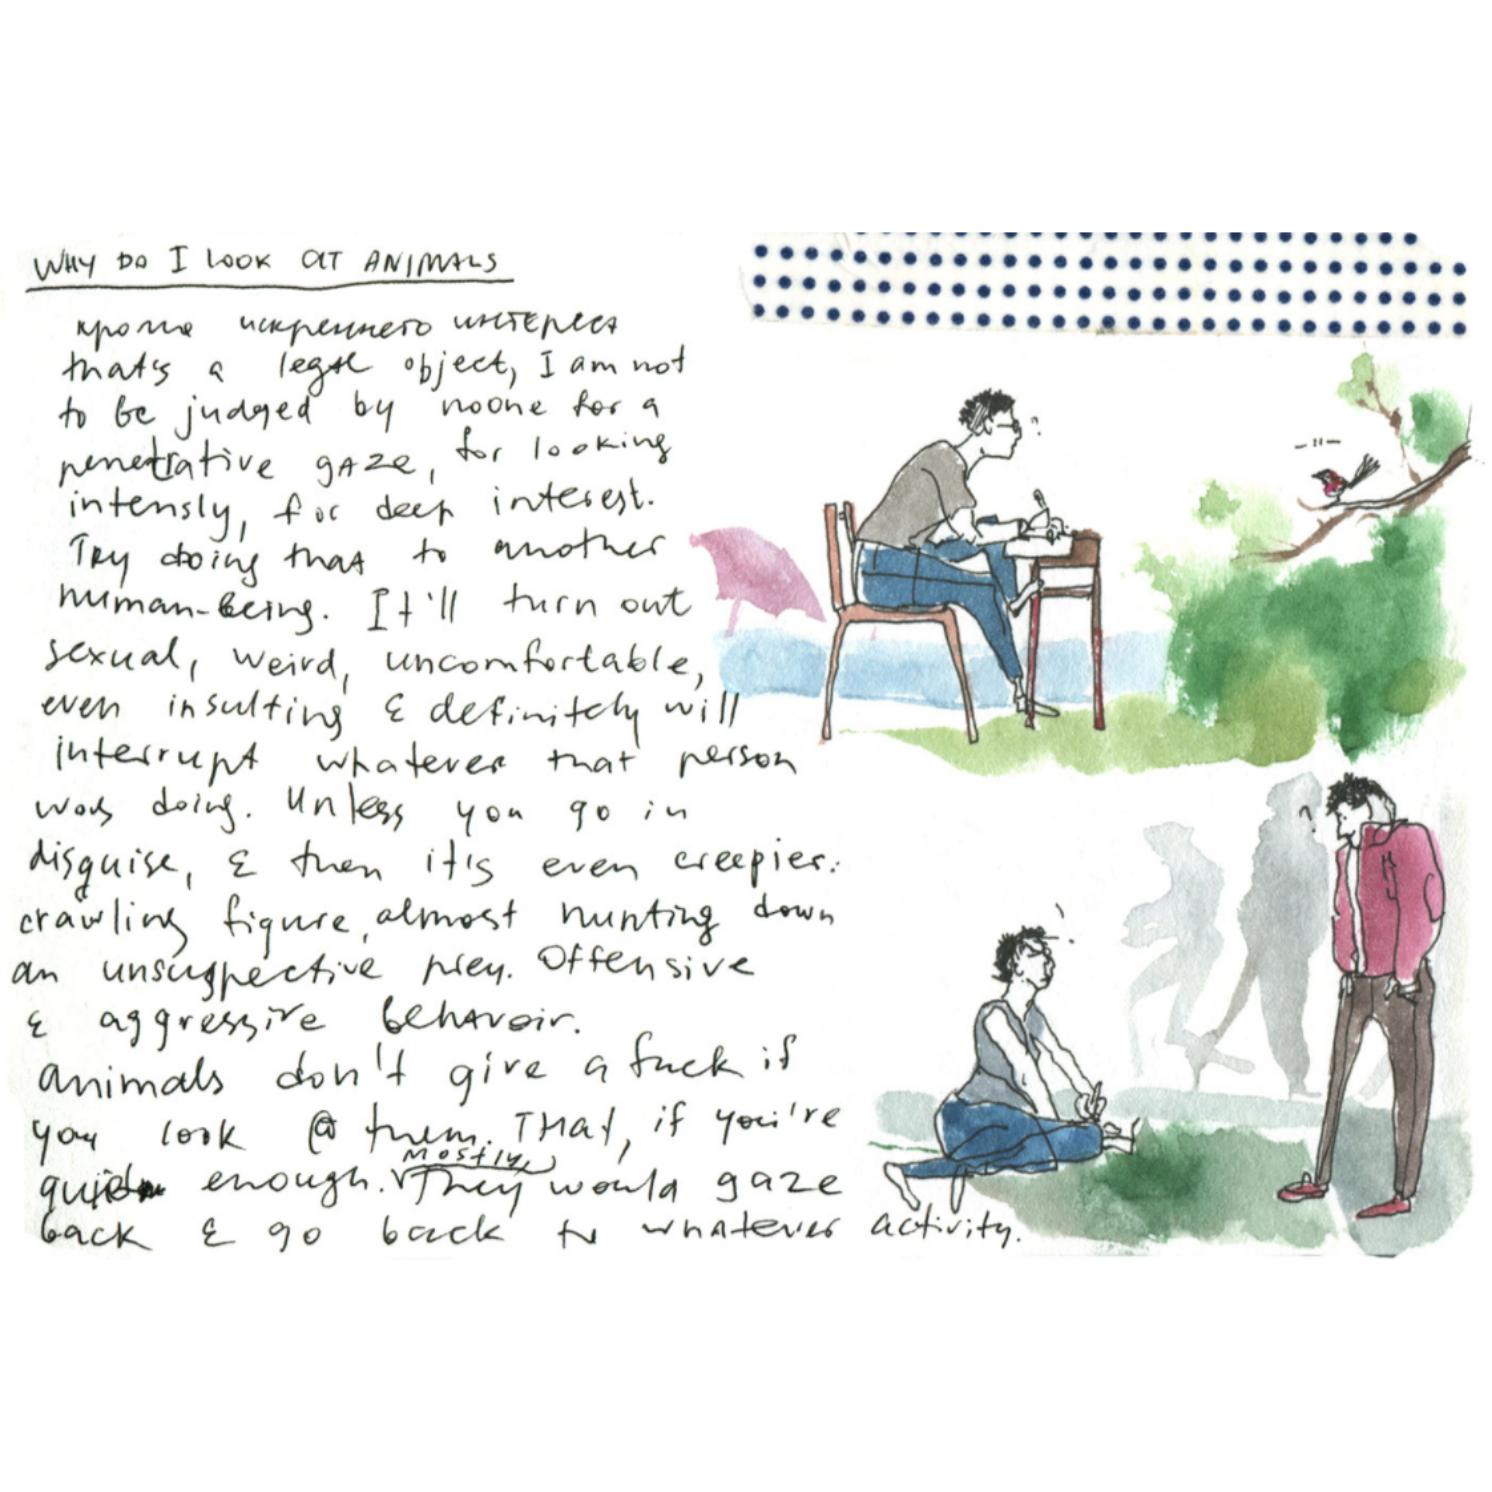 WHY DO I LOOK AT ANIMALS
кроме искреннего интереса
that's a legal object, I am not
to be judged by noone for a
penetrative gaze, for looking
intensly, for deep interest.
Try doing that to another
human-being. It'll turn out
sexual, weird, uncomfortable,
even insulting & definitely will
interrupt whatever that person
was doing. Unless you go in
disguise, & then it's even creepier:
crawling figure, almost hunting down
an unsuspective prey. Offensive
& aggressive behavoir.
animals don't give a fuck if
you look @ them. THAt, if you're
quiet enough. Mostly, They would gaze
back & go back to whatever activity.